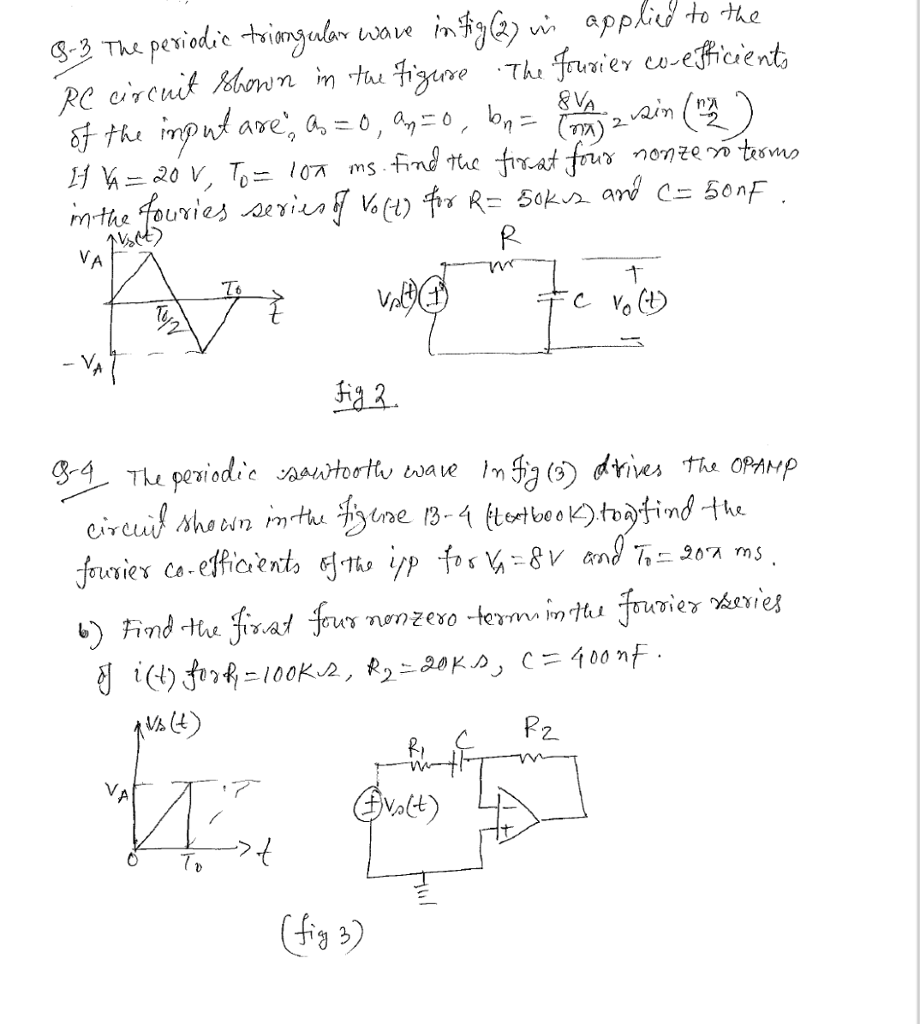 Q-3 The periodic triangular wave in fig(2) is applied to the
RC circuit shown in the figure. The fourier co-efficients
of the input are; a₀=0, aₙ=0, bₙ = 8VA/(nπ)² sin(nπ/2)
If VA = 20 V, T₀ = 10π ms. find the first four nonzero terms
in the fouries series of Vo(t) for R= 50kΩ and C= 50nF.
Vs(t)
VA
T₀/2
T₀
t
-VA
R
Vs(t)
+
C
+
Vo(t)
-
Fig 2.
Q-4 The periodic sawtooth wave In fig (3) drives the OPAMP
circuit shown in the figure 13-4 (textbook). to a) find the
fourier co-efficients of the i/p for VA=8V and T₀=20π ms.
b) Find the first four nonzero term in the fourier series
of i(t) for R₁=100KΩ, R₂=20KΩ, C=400nF.
Vs(t)
VA
0
T₀
t
R₁
C
R2
+
Vs(t)
-
+
(fig 3)